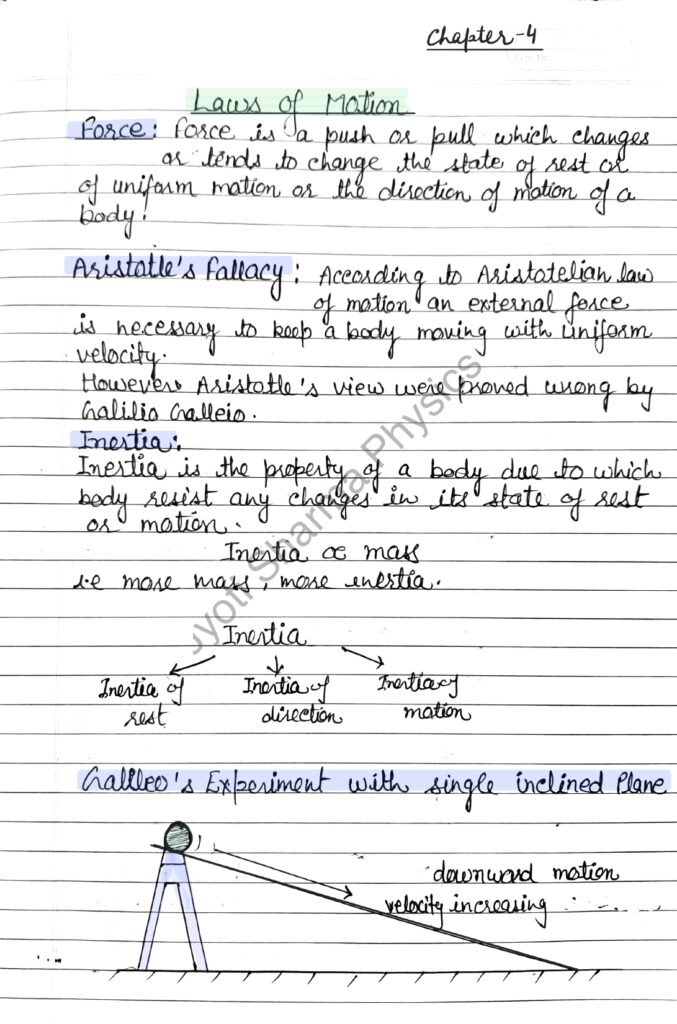 Chapter-4
Laws of Motion
Force: Force is a push or pull which changes
or tends to change the state of rest or
of uniform motion or the direction of motion of a
body.
Aristotle's Fallacy: According to Aristotelian law
of motion an external force
is necessary to keep a body moving with uniform
velocity.
However Aristotle's view were proved wrong by
Galilio Galleio.
Inertia:
Inertia is the property of a body due to which
body resist any changes in its state of rest
or motion.
Inertia ∝ mass
i.e more mass, more inertia.
Inertia
Inertia of rest
Inertia of direction
Inertia of motion
Galileo's Experiment with single inclined Plane
downward motion
velocity increasing
Jyoti Sharma Physics